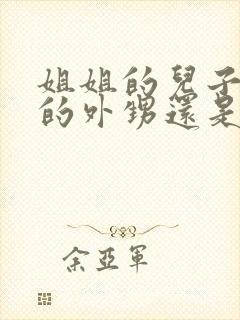 姐姐的兒子
的外甥還是
余亞軍